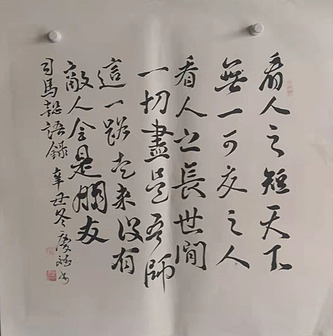 看人之短天下
無一可交之人
看人之長世間
一切盡是吾師
這一路走來沒有
敵人全是朋友
司馬懿語錄 辛丑冬慶